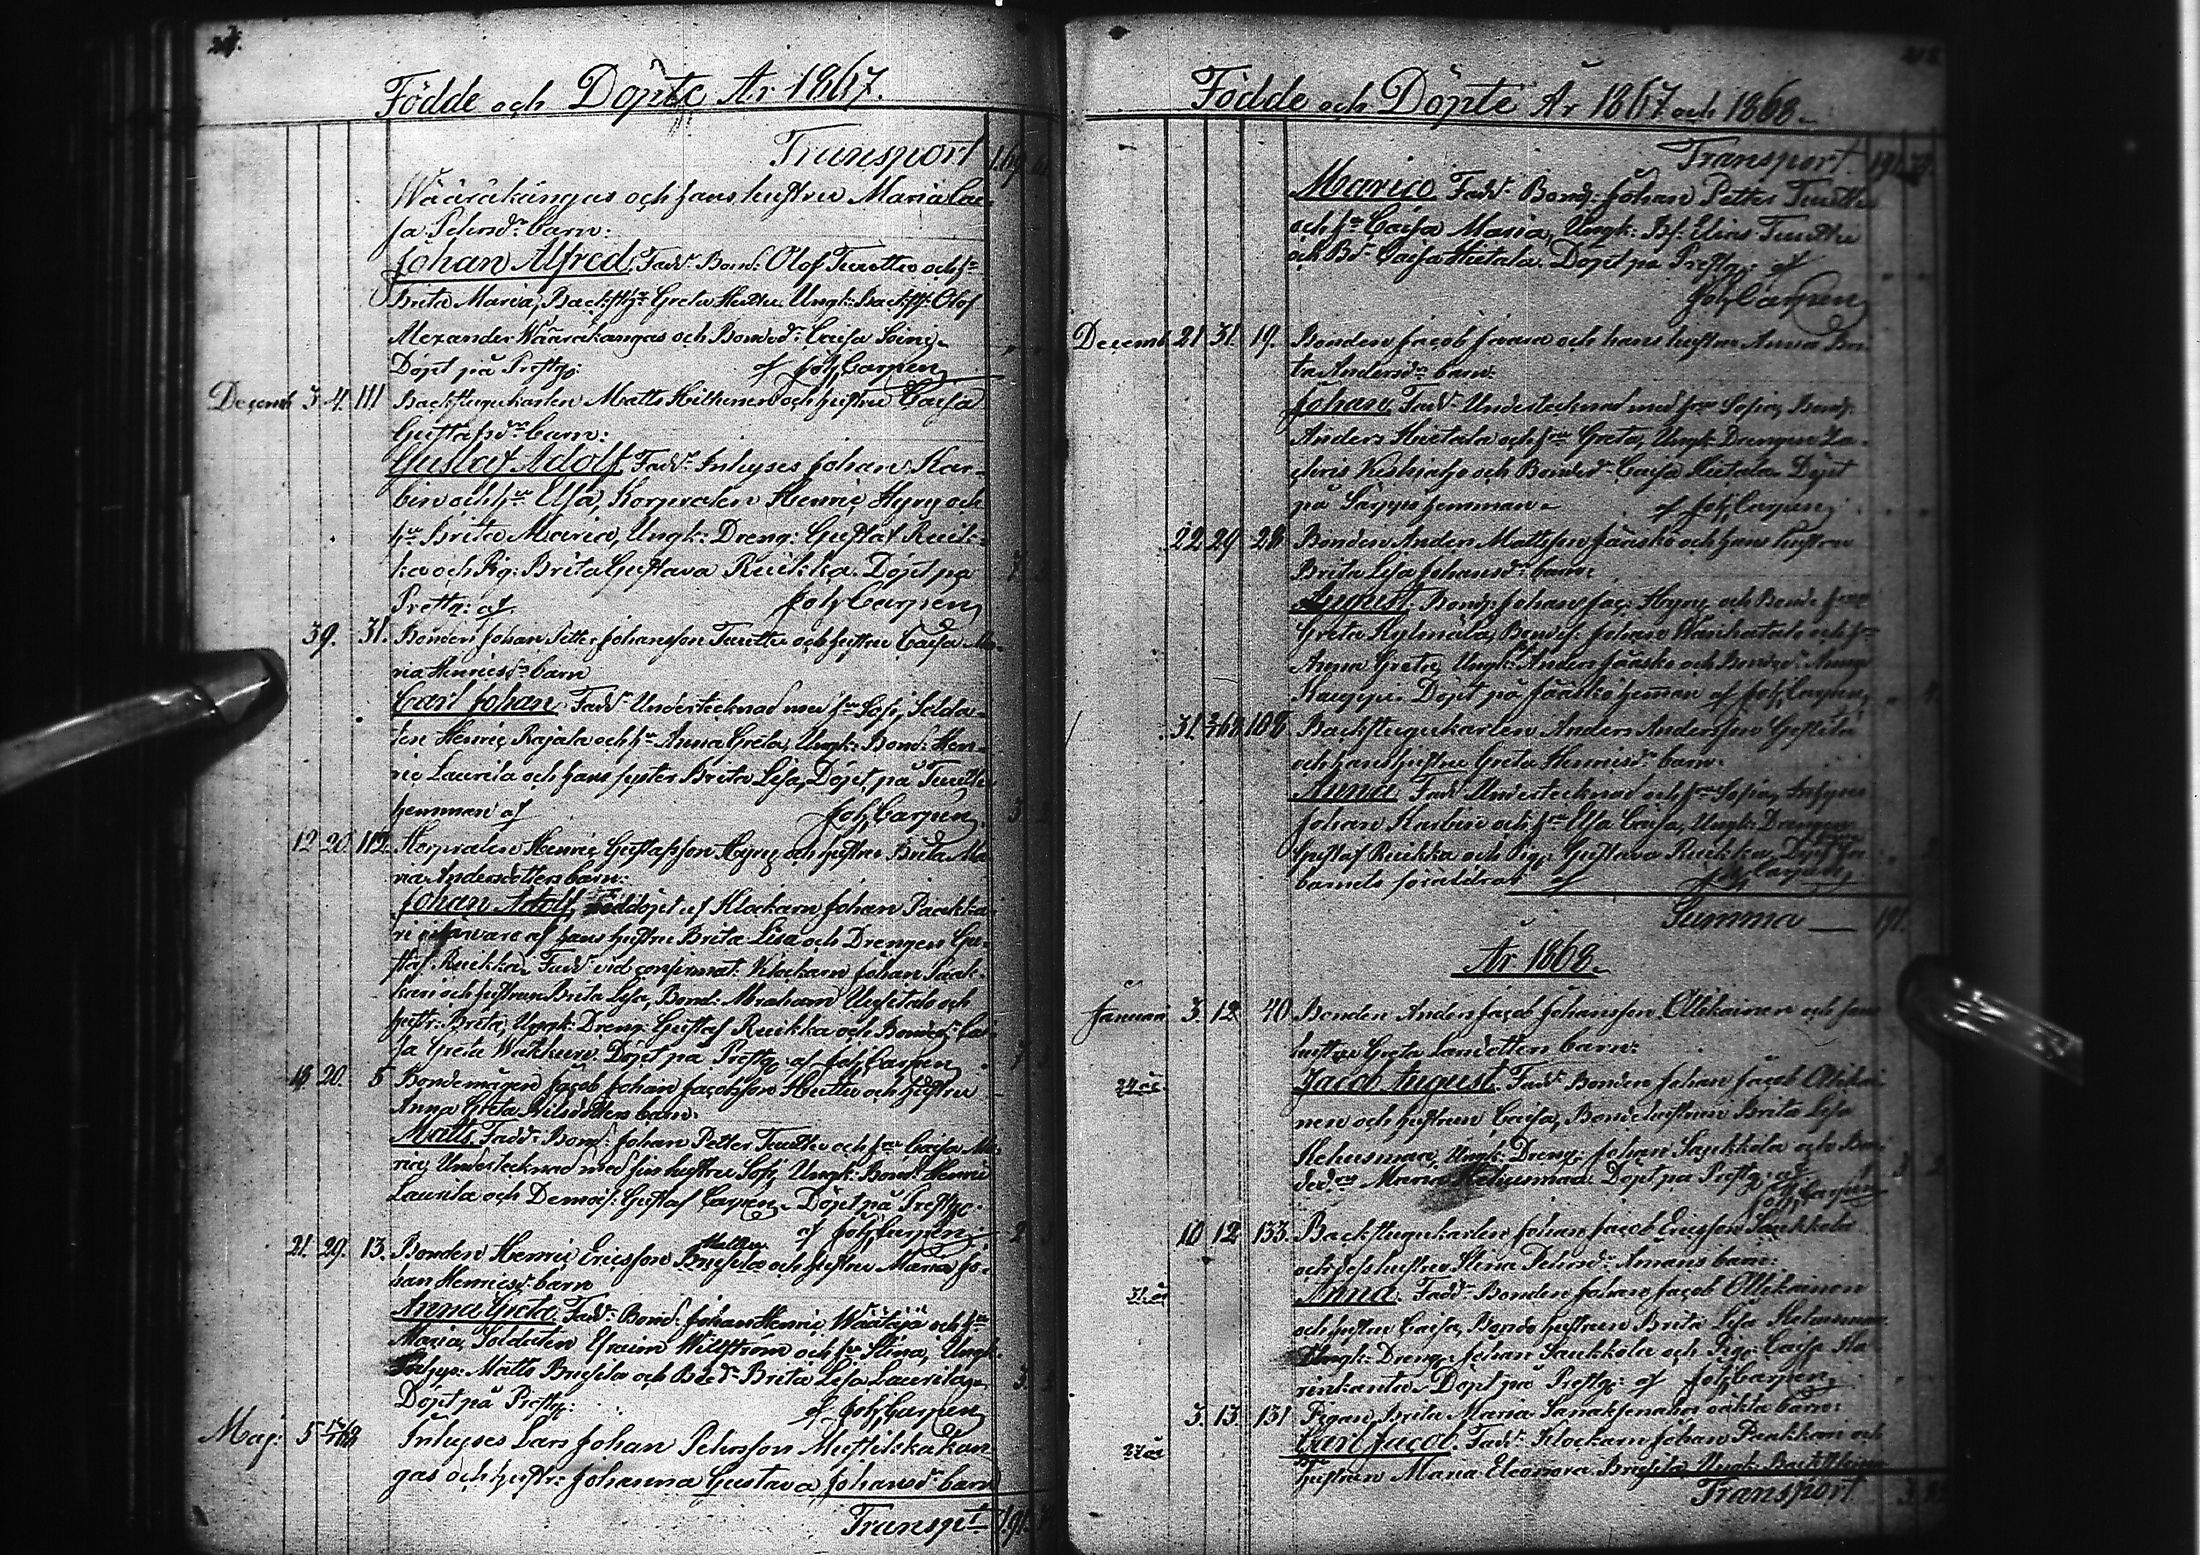 Födde och Döpte År 1867.
Transport 169
Wäärakangas och hans hustru Maria Cai-
sa Petersdr barn:
Johan Alfred, Fadd: Bond: Olof Tuuttu och hu
Brita Maria, Ungk: Olof
Alexander Wäärakangas och Bondedr Caisa
Döpt på Prestg: af Joh Carpen
Decemb 3 4. 111 Backstugukarlen Matts Hiltunen och hustru Caisa
Gustafsdr barn:
Gustaf Adolf, Fadd: Inhyses Johan Kar-
bin och hu Elsa, Korpralen Henric Hyry och
hu Brita Maria, Ungk: Dreng: Gustaf Ruik-
ka och Pig: Brita Gustava Ruikka. Döpt på
Prestg: af Joh Carpen
3 9. 31. Bonden Johan Petter Johansson Tuuttu och hustru Caisa Ma-
ria Henricsdr barn
Carl Johan, Fadd: Undertecknad med hu Sofi, Solda-
ten Henric Rajala och hu Anna Greta, Ungk: Bond: Hen-
ric Laurila och hans syster Brita Lisa, Döpt på Tuuttu
hemman af Joh Carpen
12 20 112. Korpralen Henric Gustafsson Hyry och hustru Brita Ma-
ria Andersdotters barn:
Johan Adolf, nöddöpt af Klockarn Johan Paakka-
ri i närvaro af hans hustru Brita Lisa och Drengen Gu-
staf Ruikka, Fadd: vid confirmat: Klockarn Johan Paak-
kari och hustrun Brita Lisa, Bond: Abraham Uusitalo och
hustr: Brita, Ungk: Dreng Gustaf Ruikka och Bondedr Cai-
sa Greta Wakkuri. Döpt på Prestg: af Joh Carpen
20. 5 Bondemågen Jacob Johan Jacobsson Huttu och hustru
Anna Greta Nilsdotters barn.
Matts, Fadd: Bond: Johan Petter Tuuttu och hu Caisa Ma-
ria, Undertecknad med sin hustru Sofi, Ungk: Bond: Henric
Laurila och Gustaf Carpen. Döpt på Prestg:
af Joh Carpen
21. 29. 13. Bonden Henric Ericsson och hustru Maria Jo-
han Henricsdr barn
Anna Greta, Fadd: Bond: Johan Henric Wäätäjä och hu
Maria, Soldaten Efraim Willström och hu Stina, Ungk:
Inhys: Matts och Bdedr Brita Lisa Laurila.
Döpt på Prestg: af Joh Carpen
Maj: 5 Inhyses Lars Johan Petersson Mustikkakan-
gas och hustr: Johanna Gustava Johansdr barn
Transpt 191.
Födde och Döpte År 1867 och 1868.
Transport. 191
Maria. Fadd: Bond: Johan Petter Tuuttu
och hu Caisa Maria, Ungk: Bs: Elias Tuuttu
och Bdr Caisa Hietala. Döpt på Prestg: af
Joh Carpen
Decemb 21 31. 19. Bonden Jacob Juvani och hans hustru Anna Bri-
ta Andersdr barn.
Johan, Fadd: Undertecknad med hu Sofia, Bond:
Anders Hietala och hu Greta, Ungk: Drengen
och Bondedr Caisa Hietala. Döpt
på hemman af Joh Carpen
22 29 28 Bonden Anders Mattsson Jääskö och hans hustru
Brita Lisa Johansdr barn:
August. Bond: Johan Jac: Hyry och Bonde hu
Greta Kylmälä, Bondes: Johan Wanhatalo och hu
Anna Greta, Ungk: Anders Jääskö och Bondedr Anna
Kauppi. Döpt på Jääskö hemman af Joh Carpen
31. 108 Backstugukarlen Anders Andersson
och hans hustru Greta Henricsdr barn:
Anna. Fadd: Undertecknad och hu Sofia, Inhyses
Johan Karbin och hu Elsa Caisa, Ungk: Drengen
Gustaf Ruikka och Pig: Gustava Ruikka, Döpt
barnets föräldrar af Joh Carpen
Summa — 191.
År 1868.
Januari 3. 12. 40 Bonden Anders Jacob Johansson Ollikainen och hans
hustru Greta Larsdotters barn:
Jacob August. Fadd: Bonden Johan Jacob Ollikai-
nen och hustrun Caisa, Bondehustrun Brita Lisa
Rehusmaa, Ungk: Dreng: Johan Saukkola och Bon-
dedr Maria Rehusmaa. Döpt på Prestg: af
Joh Carpen
10 12 133. Backstugukarlen Johan Jacob Ericsson Saukkola
och dess hustru Stina Petersdr barn:
Anna. Fadd: Bonden Johan Jacob Ollikainen
och hustru Caisa, Bonde hustrun Brita Lisa Rehusmaa
Ungk: Dreng: Johan Saukkola och Pig: Caisa Ka-
rinkanta. Döpt på Prestg: af Joh Carpen
3. 13. 131 Pigan Brita Maria Sanaksenahos oäkta barn:
Carl Jacob. Fadd: Klockarn Johan Paakkari och
hustrun Maria Eleonora
Transport